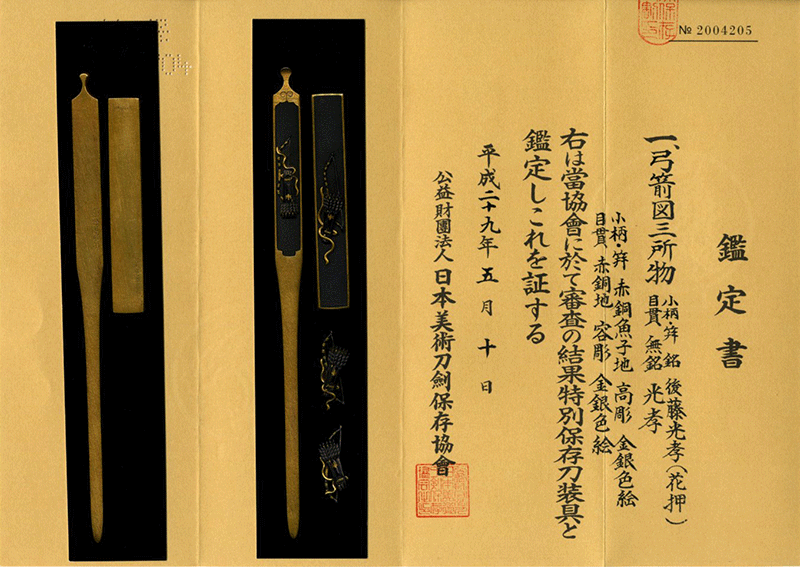 № 2004205
鑑定書
一、弓箭図三所物 小柄・笄 銘 後藤光孝(花押)
目貫 無銘 光孝
小柄・笄 赤銅魚子地 高彫 金銀色絵
目貫 赤銅地 容彫 金銀色絵
右は當協會に於て審査の結果特別保存刀装具と
鑑定しこれを証する
平成二十九年五月十日
公益財團法人 日本美術刀劍保存協會